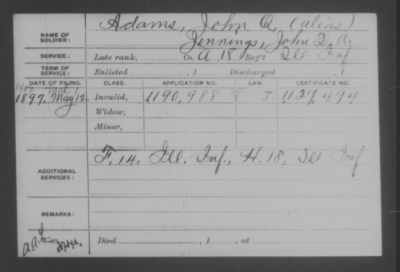 Adams, John Q. (alias)
NAME OF SOLDIER: Jennings, John Q. A.
SERVICE: Late rank, Co. A 18 Ill Inf
TERM OF SERVICE: Enlisted , 1 Discharged , 1
DATE OF FILING. CLASS. APPLICATION NO. LAW. CERTIFICATE NO.
1897, May Invalid, 1190,988 J 1,127,494
Widow,
Minor,
ADDITIONAL SERVICES: F. 14, Ill. Inf., H. 18, Ill Inf
REMARKS:
Died , 1 , at